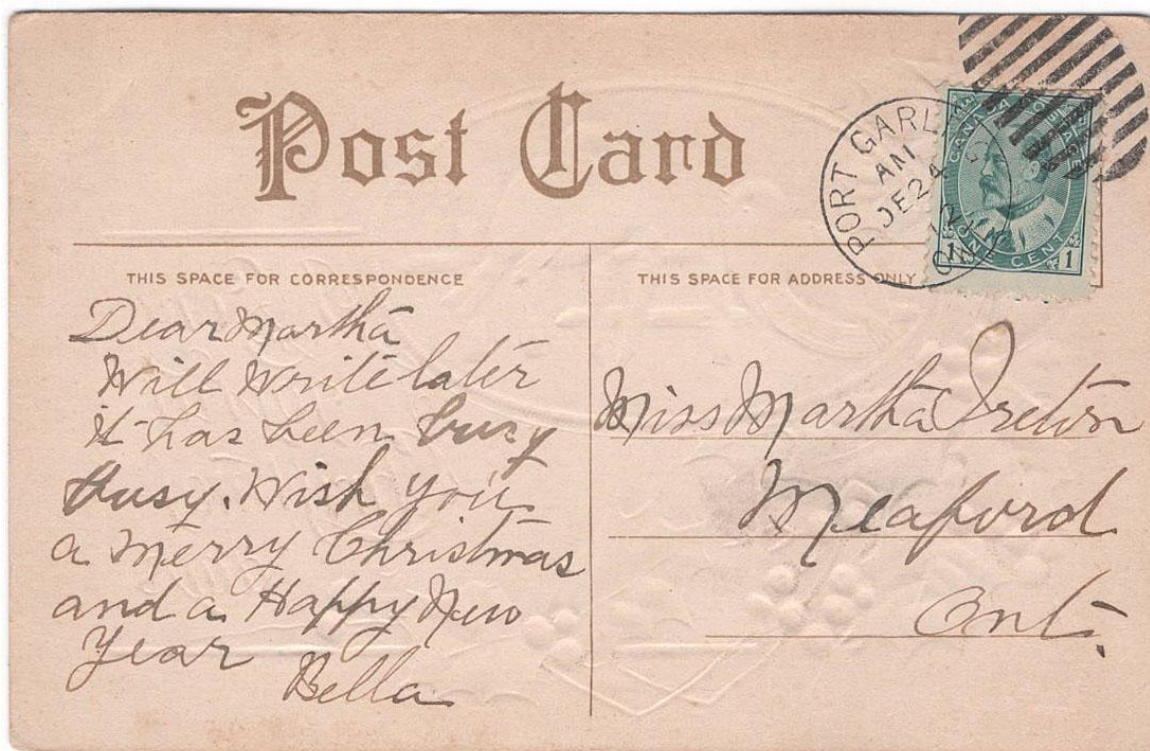 Post Card
PORT CARLING
AM
DE 24
12
ONT
CANADA POSTAGE
1 ONE CENT 1
THIS SPACE FOR CORRESPONDENCE
Dear Martha
Will write later
it has been busy
busy. Wish you
a Merry Christmas
and a Happy New
Year
Bella
THIS SPACE FOR ADDRESS ONLY
Miss Martha Ireton
Meaford
Ont.